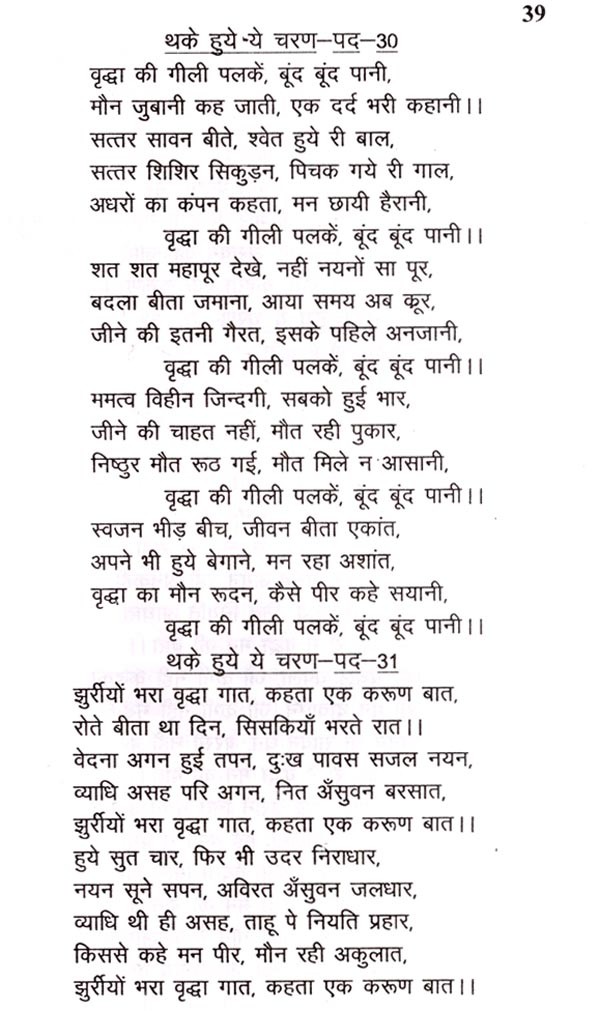 39
थके हुये ये चरण–पद–30
वृद्धा की गीली पलकें, बूंद बूंद पानी,
मौन जुबानी कह जाती, एक दर्द भरी कहानी।।
सत्तर सावन बीते, श्वेत हुये री बाल,
सत्तर शिशिर सिकुड़न, पिचक गये री गाल,
अधरों का कंपन कहता, मन छायी हैरानी,
वृद्धा की गीली पलकें, बूंद बूंद पानी।।
शत शत महापूर देखे, नहीं नयनों सा पूर,
बदला बीता जमाना, आया समय अब कूर,
जीने की इतनी गैरत, इसके पहिले अनजानी,
वृद्धा की गीली पलकें, बूंद बूंद पानी।।
ममत्व विहीन जिन्दगी, सबको हुई भार,
जीने की चाहत नहीं, मौत रही पुकार,
निष्ठुर मौत रूठ गई, मौत मिले न आसानी,
वृद्धा की गीली पलकें, बूंद बूंद पानी।।
स्वजन भीड़ बीच, जीवन बीता एकांत,
अपने भी हुये बेगाने, मन रहा अशांत,
वृद्धा का मौन रूदन, कैसे पीर कहे सयानी,
वृद्धा की गीली पलकें, बूंद बूंद पानी।।
थके हुये ये चरण–पद–31
झुर्रीयों भरा वृद्धा गात, कहता एक करूण बात,
रोते बीता था दिन, सिसकियाँ भरते रात।।
वेदना अगन हुई तपन, दुःख पावस सजल नयन,
व्याधि असह परि अगन, नित अँसुवन बरसात,
झुर्रीयों भरा वृद्धा गात, कहता एक करूण बात।।
हुये सुत चार, फिर भी उदर निराधार,
नयन सूने सपन, अविरत अँसुवन जलधार,
व्याधि थी ही असह, ताहू पे नियति प्रहार,
किससे कहे मन पीर, मौन रही अकुलात,
झुर्रीयों भरा वृद्धा गात, कहता एक करूण बात।।